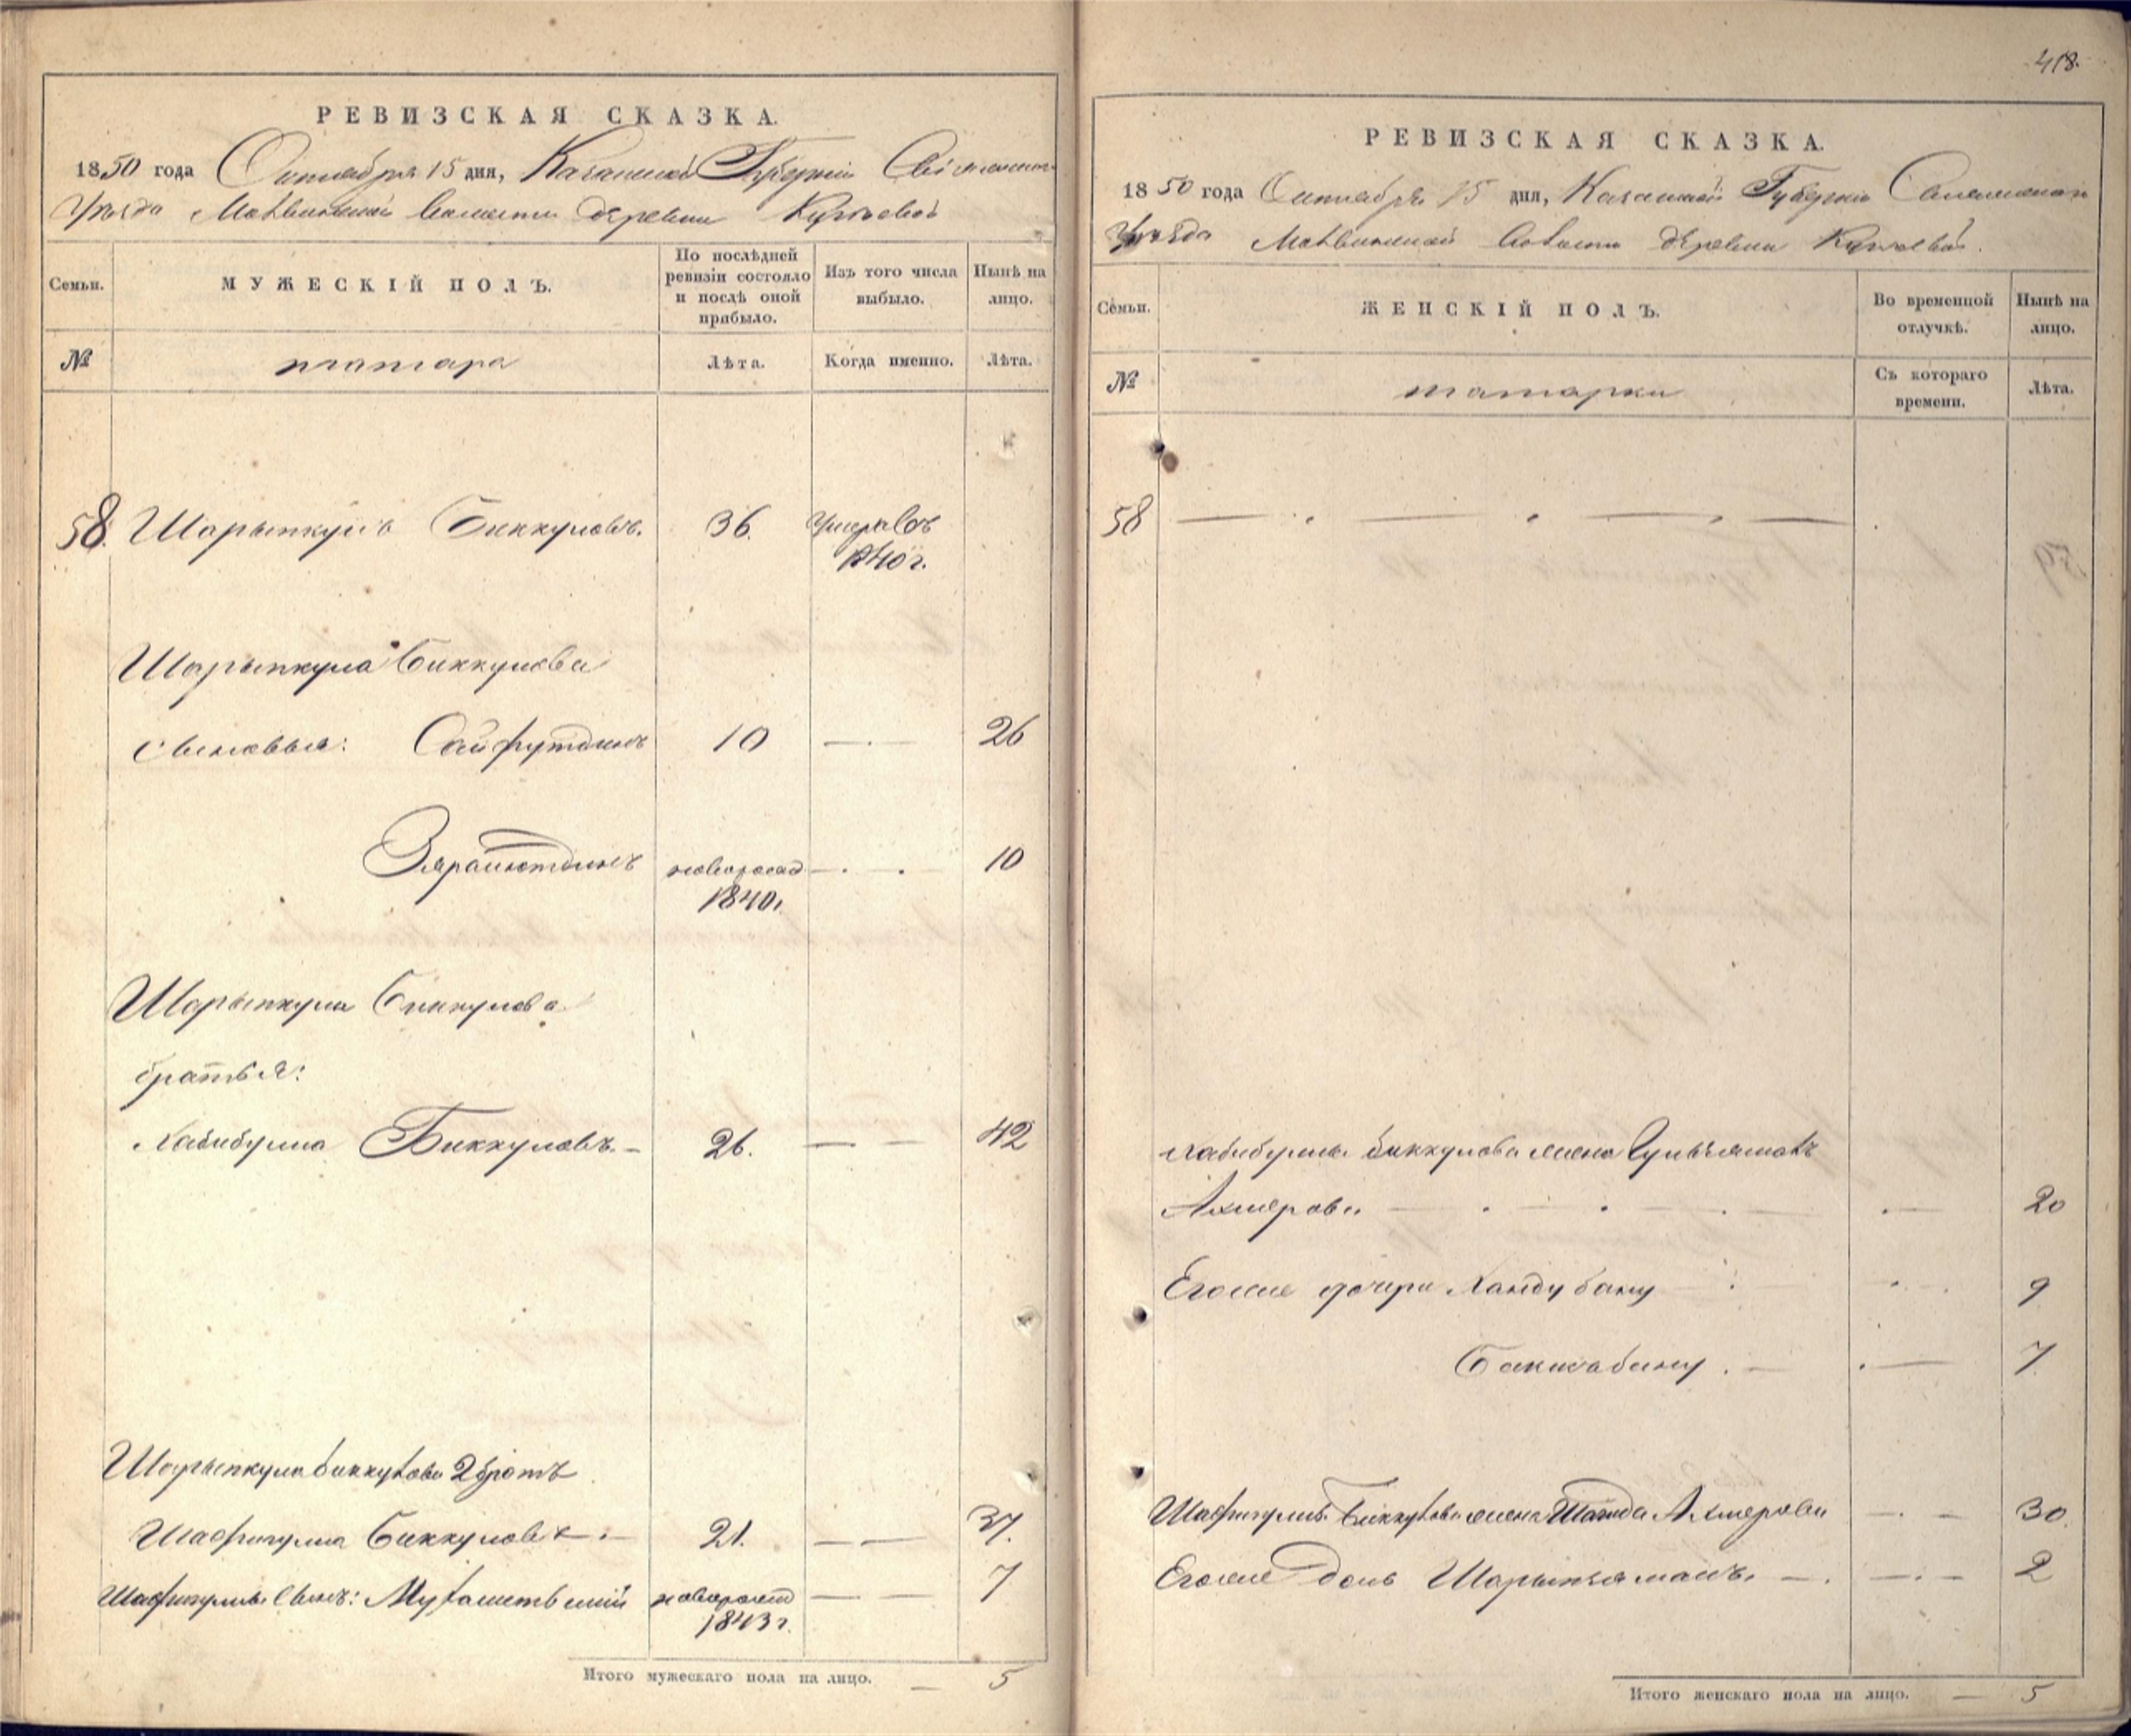 РЕВИЗСКАЯ СКАЗКА.
1850 года Октября 15 дня, Казанской Губернiи
Уѣзда волости деревни
Семьи.
МУЖЕСКIЙ ПОЛЪ.
По послѣдней ревизiи состояло и послѣ оной прибыло.
Изъ того числа выбыло.
Нынѣ на лицо.
№
татара
Лѣта.
Когда именно.
Лѣта.
58. Шарыпкулъ Биккуловъ. 36. Умеръ въ
1840 г.
Шарыпкула Биккулова
сыновья: Сайфутдинъ 10 26
новорожд 10
1840г
Шарыпкула Биккулова
братья:
Хабибулла Биккуловъ 26. 42
Шарыпкула Биккулова 2 братъ
Шафигулла Биккуловъ 21. 37.
Шафигуллы сынъ: новорожд 7
1843 г.
Итого мужескаго пола на лицо. — 5
418.
РЕВИЗСКАЯ СКАЗКА.
1850 года Октября 15 дня, Казанской Губернiи
Уѣзда волости деревни
Семьи.
ЖЕНСКIЙ ПОЛЪ.
Во временной отлучкѣ.
Нынѣ на лицо.
№
татарки
Съ котораго времени.
Лѣта.
58
Хабибуллы Биккулова жена
Ахмерова 20
Егоже дочери Хандубану 9
7
Шафигуллы Биккулова жена Ахмерова 30
Егоже дочь 2
Итого женскаго пола на лицо. — 5